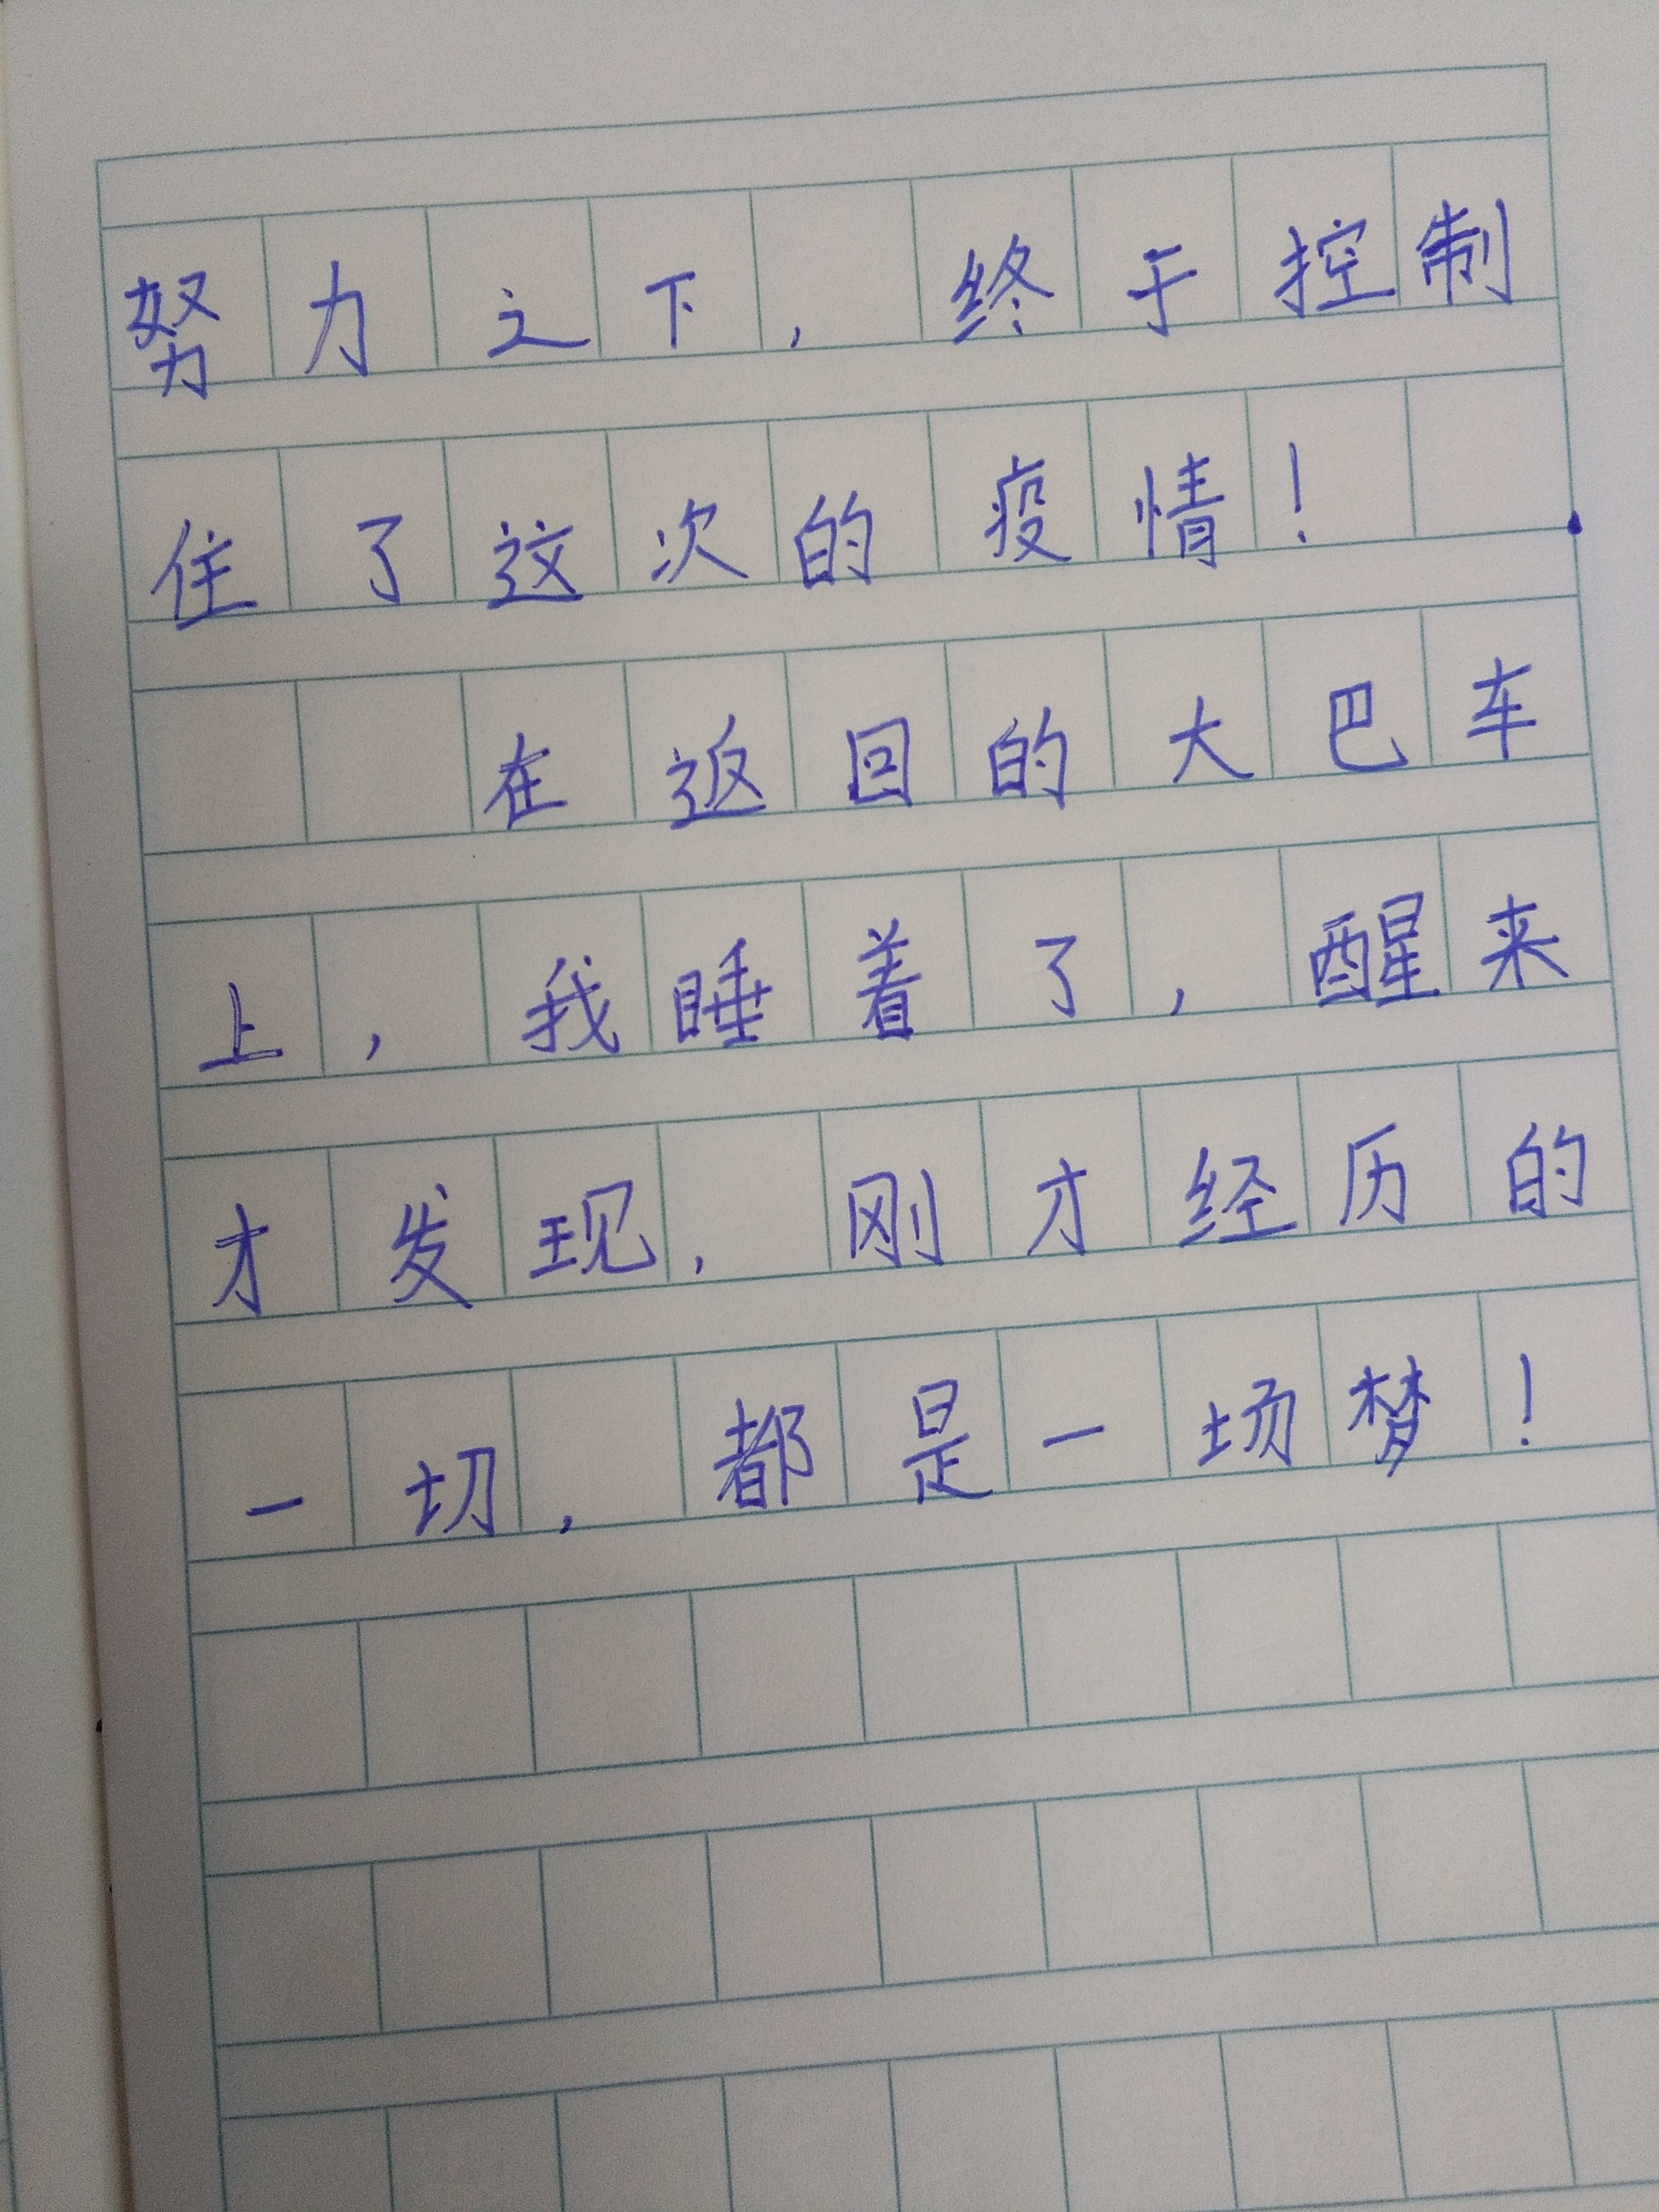 努力之下，终于控制
住了这次的疫情！
在返回的大巴车
上，我睡着了，醒来
才发现，刚才经历的
一切，都是一场梦！